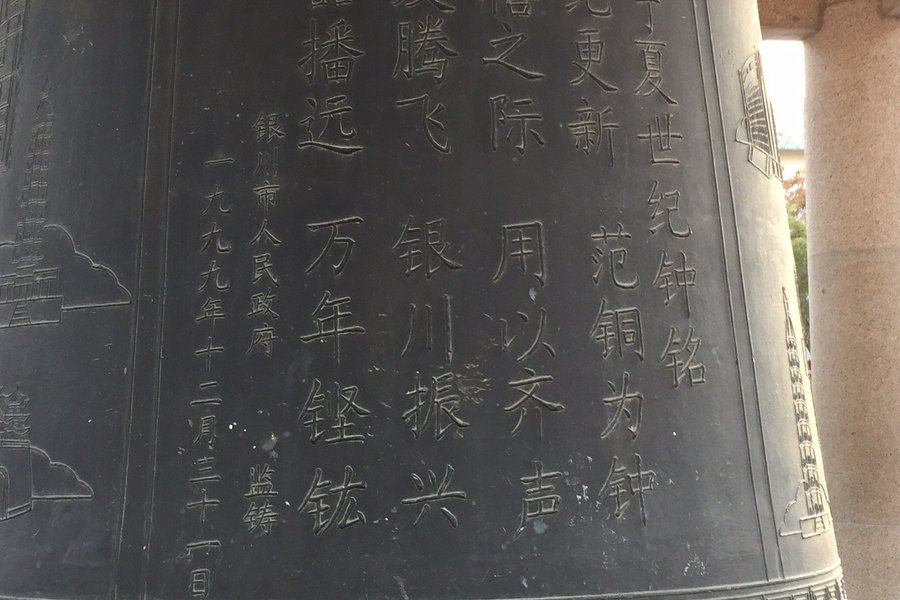 宁夏世纪钟铭
更新 范铜为钟
之际 用以齐声
腾飞 银川振兴
播远 万年铿鈜
银川市人民政府 监铸
一九九九年十二月三十一日